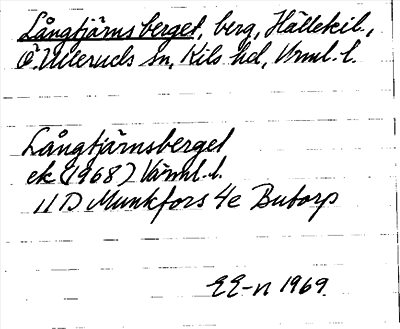 Långtjärnsberget, berg, Hällekil.,
Ö. Ulleruds sn, Kils hd, Värml. l.
Långtjärnsberget
ek (1968) Värml. l.
11 D Munkfors 4e Butorp
EE-n 1969.